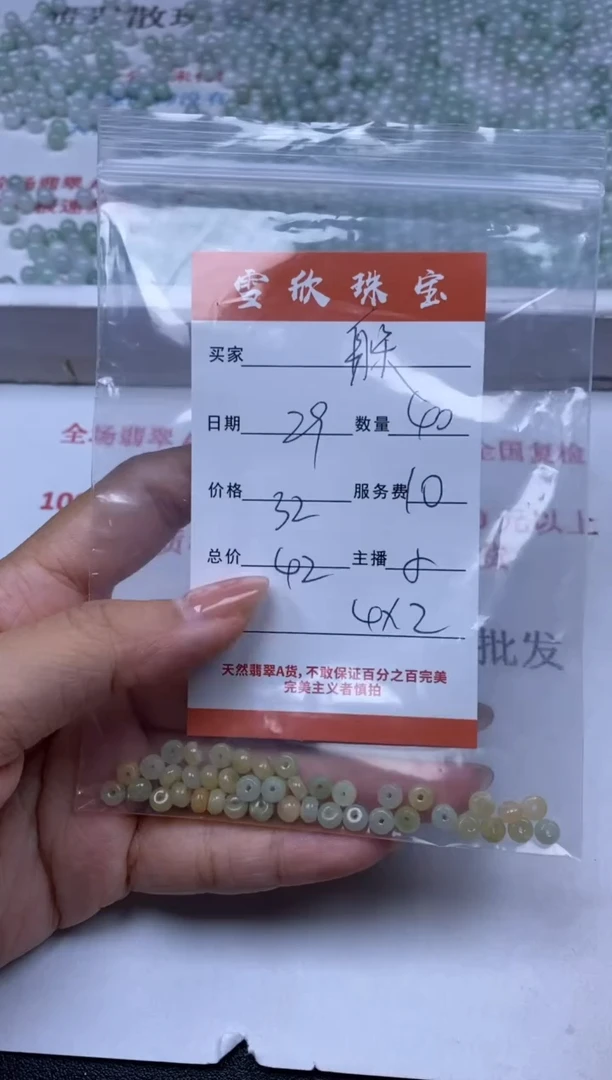 卖散珠
雪欣珠宝
买家
日期 29 数量 40
价格 32 服务费 10
总价 42 主播
4X2
天然翡翠A货，不敢保证百分之百完美
完美主义者慎拍
全场翡翠
全国复检
100
元以上
批发